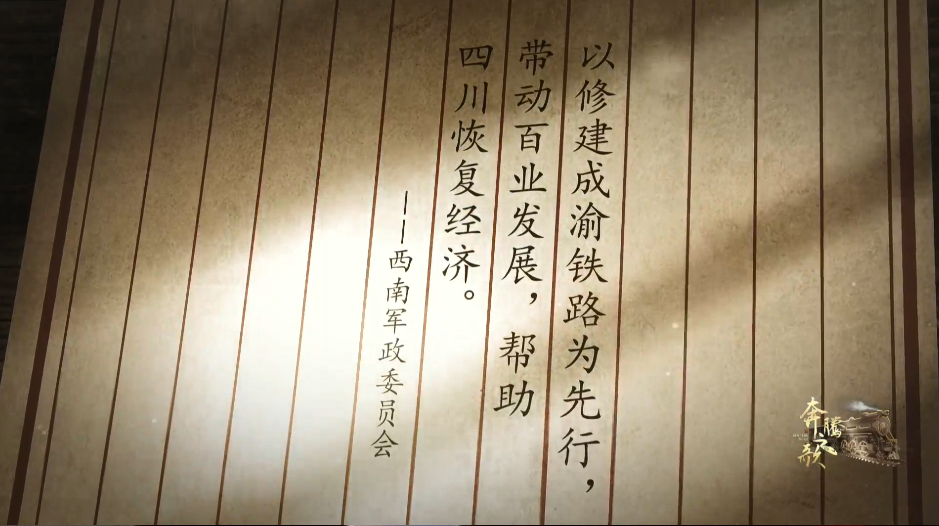 以修建成渝铁路为先行，
带动百业发展，帮助
四川恢复经济。
——西南军政委员会
奔腾之歌